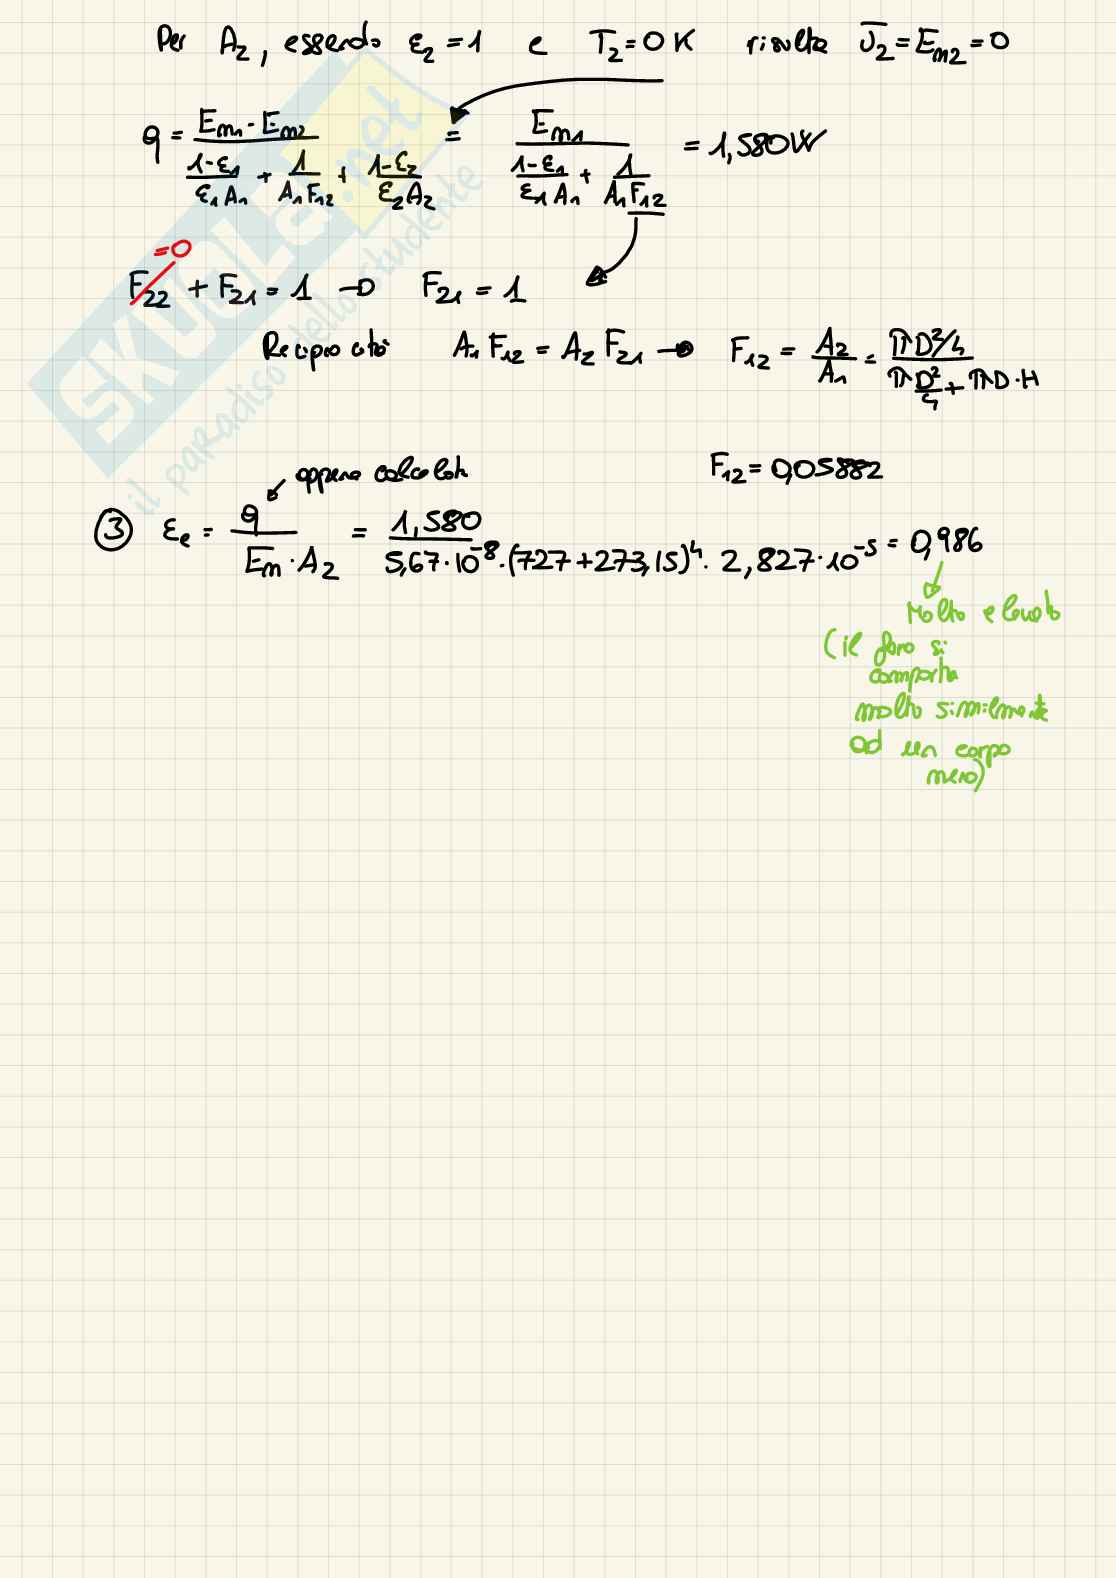 Per A₂, essendo ε₂ = 1 e T₂ = 0 K risulta J₂ = Em2 = 0
q = (Em1 - Em2) / ((1-ε₁)/(ε₁A₁) + 1/(A₁F₁₂) + (1-ε₂)/(ε₂A₂)) = Em1 / ((1-ε₁)/(ε₁A₁) + 1/(A₁F₁₂)) = 1,580W
=0
F₂₂ + F₂₁ = 1 → F₂₁ = 1
Reciprocità A₁ F₁₂ = A₂ F₂₁ → F₁₂ = A₂/A₁ = (πD²/4) / (πD²/4 + πD·H)
appena calcolata
F₁₂ = 0,05882
③ εe = q / (Em · A₂) = 1,580 / (5,67·10⁻⁸·(727+273,15)⁴· 2,827·10⁻⁵) = 0,986
Molto elevato
(il foro si
comporta
molto similmente
ad un corpo
nero)
SKUOLA.net
il paradiso dello studente